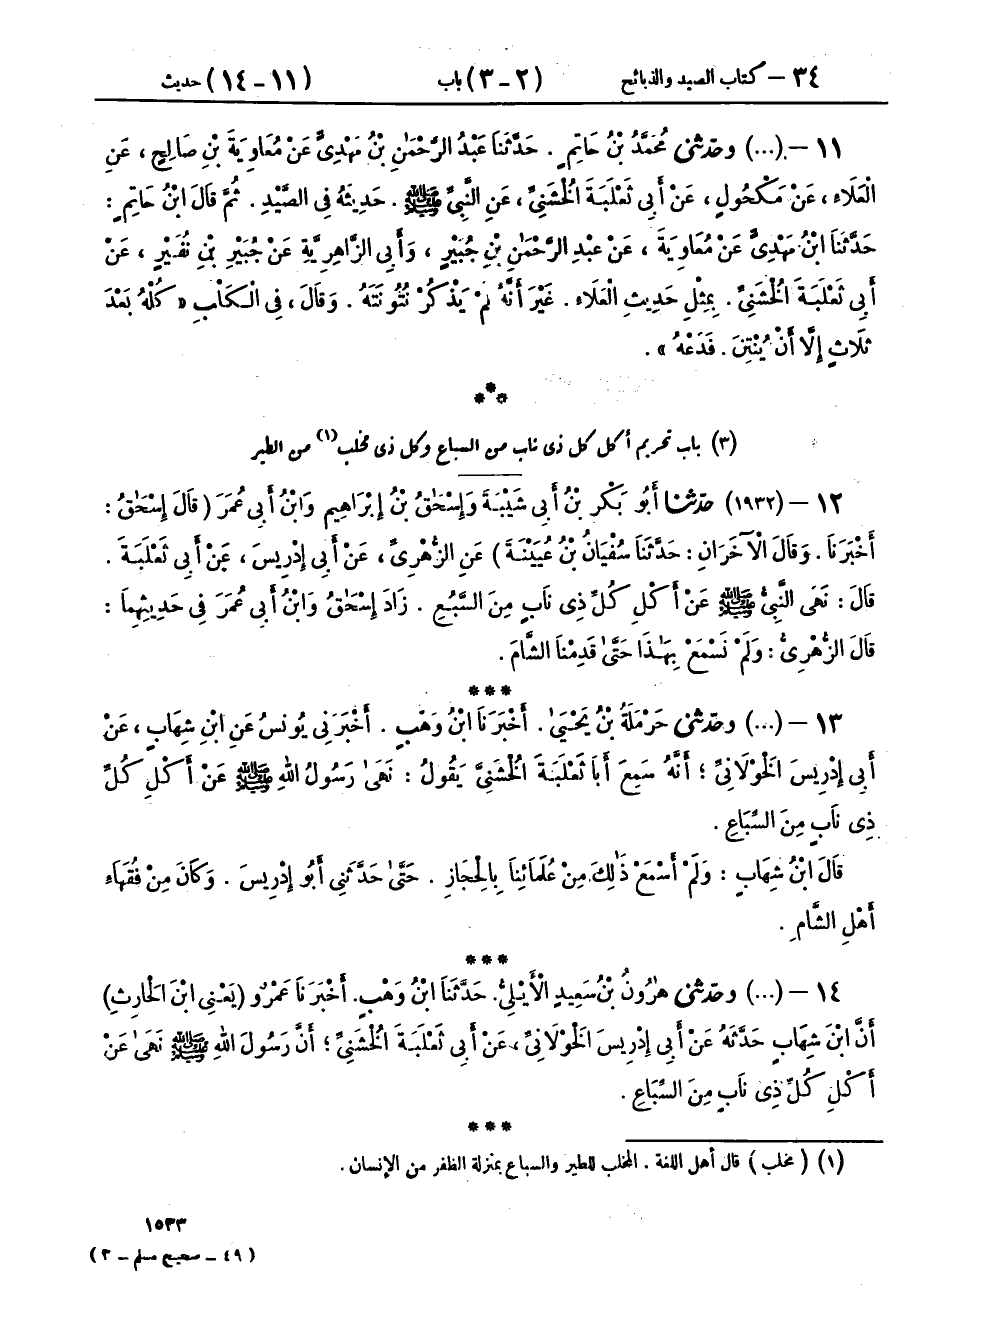 ٣٤ – كتاب الصيد والذبائح (٢ - ٣) باب (١١ - ١٤) حديث
١١ – (...) وحَدَّثَنِي مُحَمَّدُ بْنُ حَاتِمٍ . حَدَّثَنَا عَبْدُ الرَّحْمَٰنِ بْنُ مَهْدِيٍّ عَنْ مُعَاوِيَةَ بْنِ صَالِحٍ ، عَنِ
الْعَلَاءِ ، عَنْ مَكْحُولٍ ، عَنْ أَبِي ثَعْلَبَةَ الْخُشَنِيِّ ، عَنِ النَّبِيِّ ﷺ . حَدِيثَهُ فِي الصَّيْدِ . ثُمَّ قَالَ ابْنُ حَاتِمٍ :
حَدَّثَنَا ابْنُ مَهْدِيٍّ عَنْ مُعَاوِيَةَ ، عَنْ عَبْدِ الرَّحْمَٰنِ بْنِ جُبَيْرٍ ، وَأَبِي الزَّاهِرِيَّةِ عَنْ جُبَيْرِ بْنِ نُفَيْرٍ ، عَنْ
أَبِي ثَعْلَبَةَ الْخُشَنِيِّ . بِمِثْلِ حَدِيثِ الْعَلَاءِ . غَيْرَ أَنَّهُ لَمْ يَذْكُرْ نُتُونَتَهُ . وَقَالَ ، فِي الْكَلْبِ « كُلْهُ بَعْدَ
ثَلَاثٍ إِلَّا أَنْ يُنْتِنَ . فَدَعْهُ » .
***
(٣) باب تحريم أكل كل ذي ناب من السباع وكل ذي مخلب(١) من الطير
١٢ – (١٩٣٢) حَدَّثَنَا أَبُو بَكْرِ بْنُ أَبِي شَيْبَةَ وَإِسْحَٰقُ بْنُ إِبْرَاهِيمَ وَابْنُ أَبِي عُمَرَ ( قَالَ إِسْحَٰقُ :
أَخْبَرَنَا . وَقَالَ الْآخَرَانِ : حَدَّثَنَا سُفْيَانُ بْنُ عُيَيْنَةَ ) عَنِ الزُّهْرِيِّ ، عَنْ أَبِي إِدْرِيسَ ، عَنْ أَبِي ثَعْلَبَةَ .
قَالَ : نَهَى النَّبِيُّ ﷺ عَنْ أَكْلِ كُلِّ ذِي نَابٍ مِنَ السَّبُعِ . زَادَ إِسْحَٰقُ وَابْنُ أَبِي عُمَرَ فِي حَدِيثِهِمَا :
قَالَ الزُّهْرِيُّ : وَلَمْ نَسْمَعْ بِهَٰذَا حَتَّىٰ قَدِمْنَا الشَّامَ .
***
١٣ – (...) وحَدَّثَنِي حَرْمَلَةُ بْنُ يَحْيَىٰ . أَخْبَرَنَا ابْنُ وَهْبٍ . أَخْبَرَنِي يُونُسُ عَنِ ابْنِ شِهَابٍ ، عَنْ
أَبِي إِدْرِيسَ الْخَوْلَانِيِّ ؛ أَنَّهُ سَمِعَ أَبَا ثَعْلَبَةَ الْخُشَنِيَّ يَقُولُ : نَهَىٰ رَسُولُ اللهِ ﷺ عَنْ أَكْلِ كُلِّ
ذِي نَابٍ مِنَ السِّبَاعِ .
قَالَ ابْنُ شِهَابٍ : وَلَمْ أَسْمَعْ ذَٰلِكَ مِنْ عُلَمَائِنَا بِالْحِجَازِ . حَتَّىٰ حَدَّثَنِي أَبُو إِدْرِيسَ . وَكَانَ مِنْ فُقَهَاءِ
أَهْلِ الشَّامِ .
***
١٤ – (...) وحَدَّثَنِي هَٰرُونُ بْنُ سَعِيدٍ الْأَيْلِيُّ . حَدَّثَنَا ابْنُ وَهْبٍ . أَخْبَرَنَا عَمْرٌو (يَعْنِي ابْنَ الْحَارِثِ)
أَنَّ ابْنَ شِهَابٍ حَدَّثَهُ عَنْ أَبِي إِدْرِيسَ الْخَوْلَانِيِّ ، عَنْ أَبِي ثَعْلَبَةَ الْخُشَنِيِّ ؛ أَنَّ رَسُولَ اللهِ ﷺ نَهَىٰ عَنْ
أَكْلِ كُلِّ ذِي نَابٍ مِنَ السِّبَاعِ .
***
(١) ( مخلب ) قال أهل اللغة . المخلب للطير والسباع بمنزلة الظفر من الإنسان .
١٥٣٣
( ٤٩ - صحيح مسلم - ٣ )